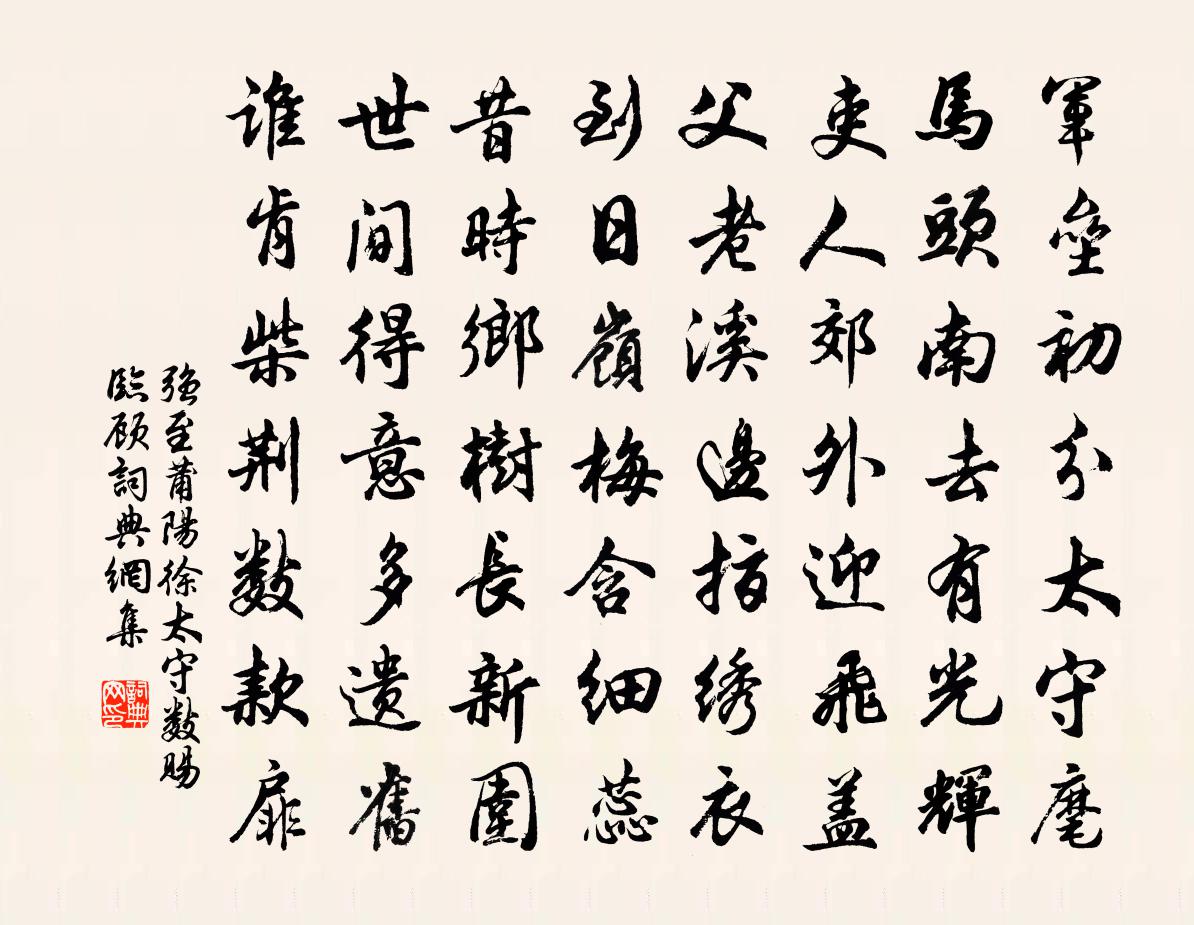 軍壘初分太守麾
馬頭南去有光輝
吏人郊外迎飛蓋
父老溪邊指绣衣
到日嶺梅含细蕊
昔時鄉樹長新圍
世间得意多遗舊
谁肯柴荆數款扉
强至莆陽徐太守數賜
臨顾詞典網集
詞典
网印